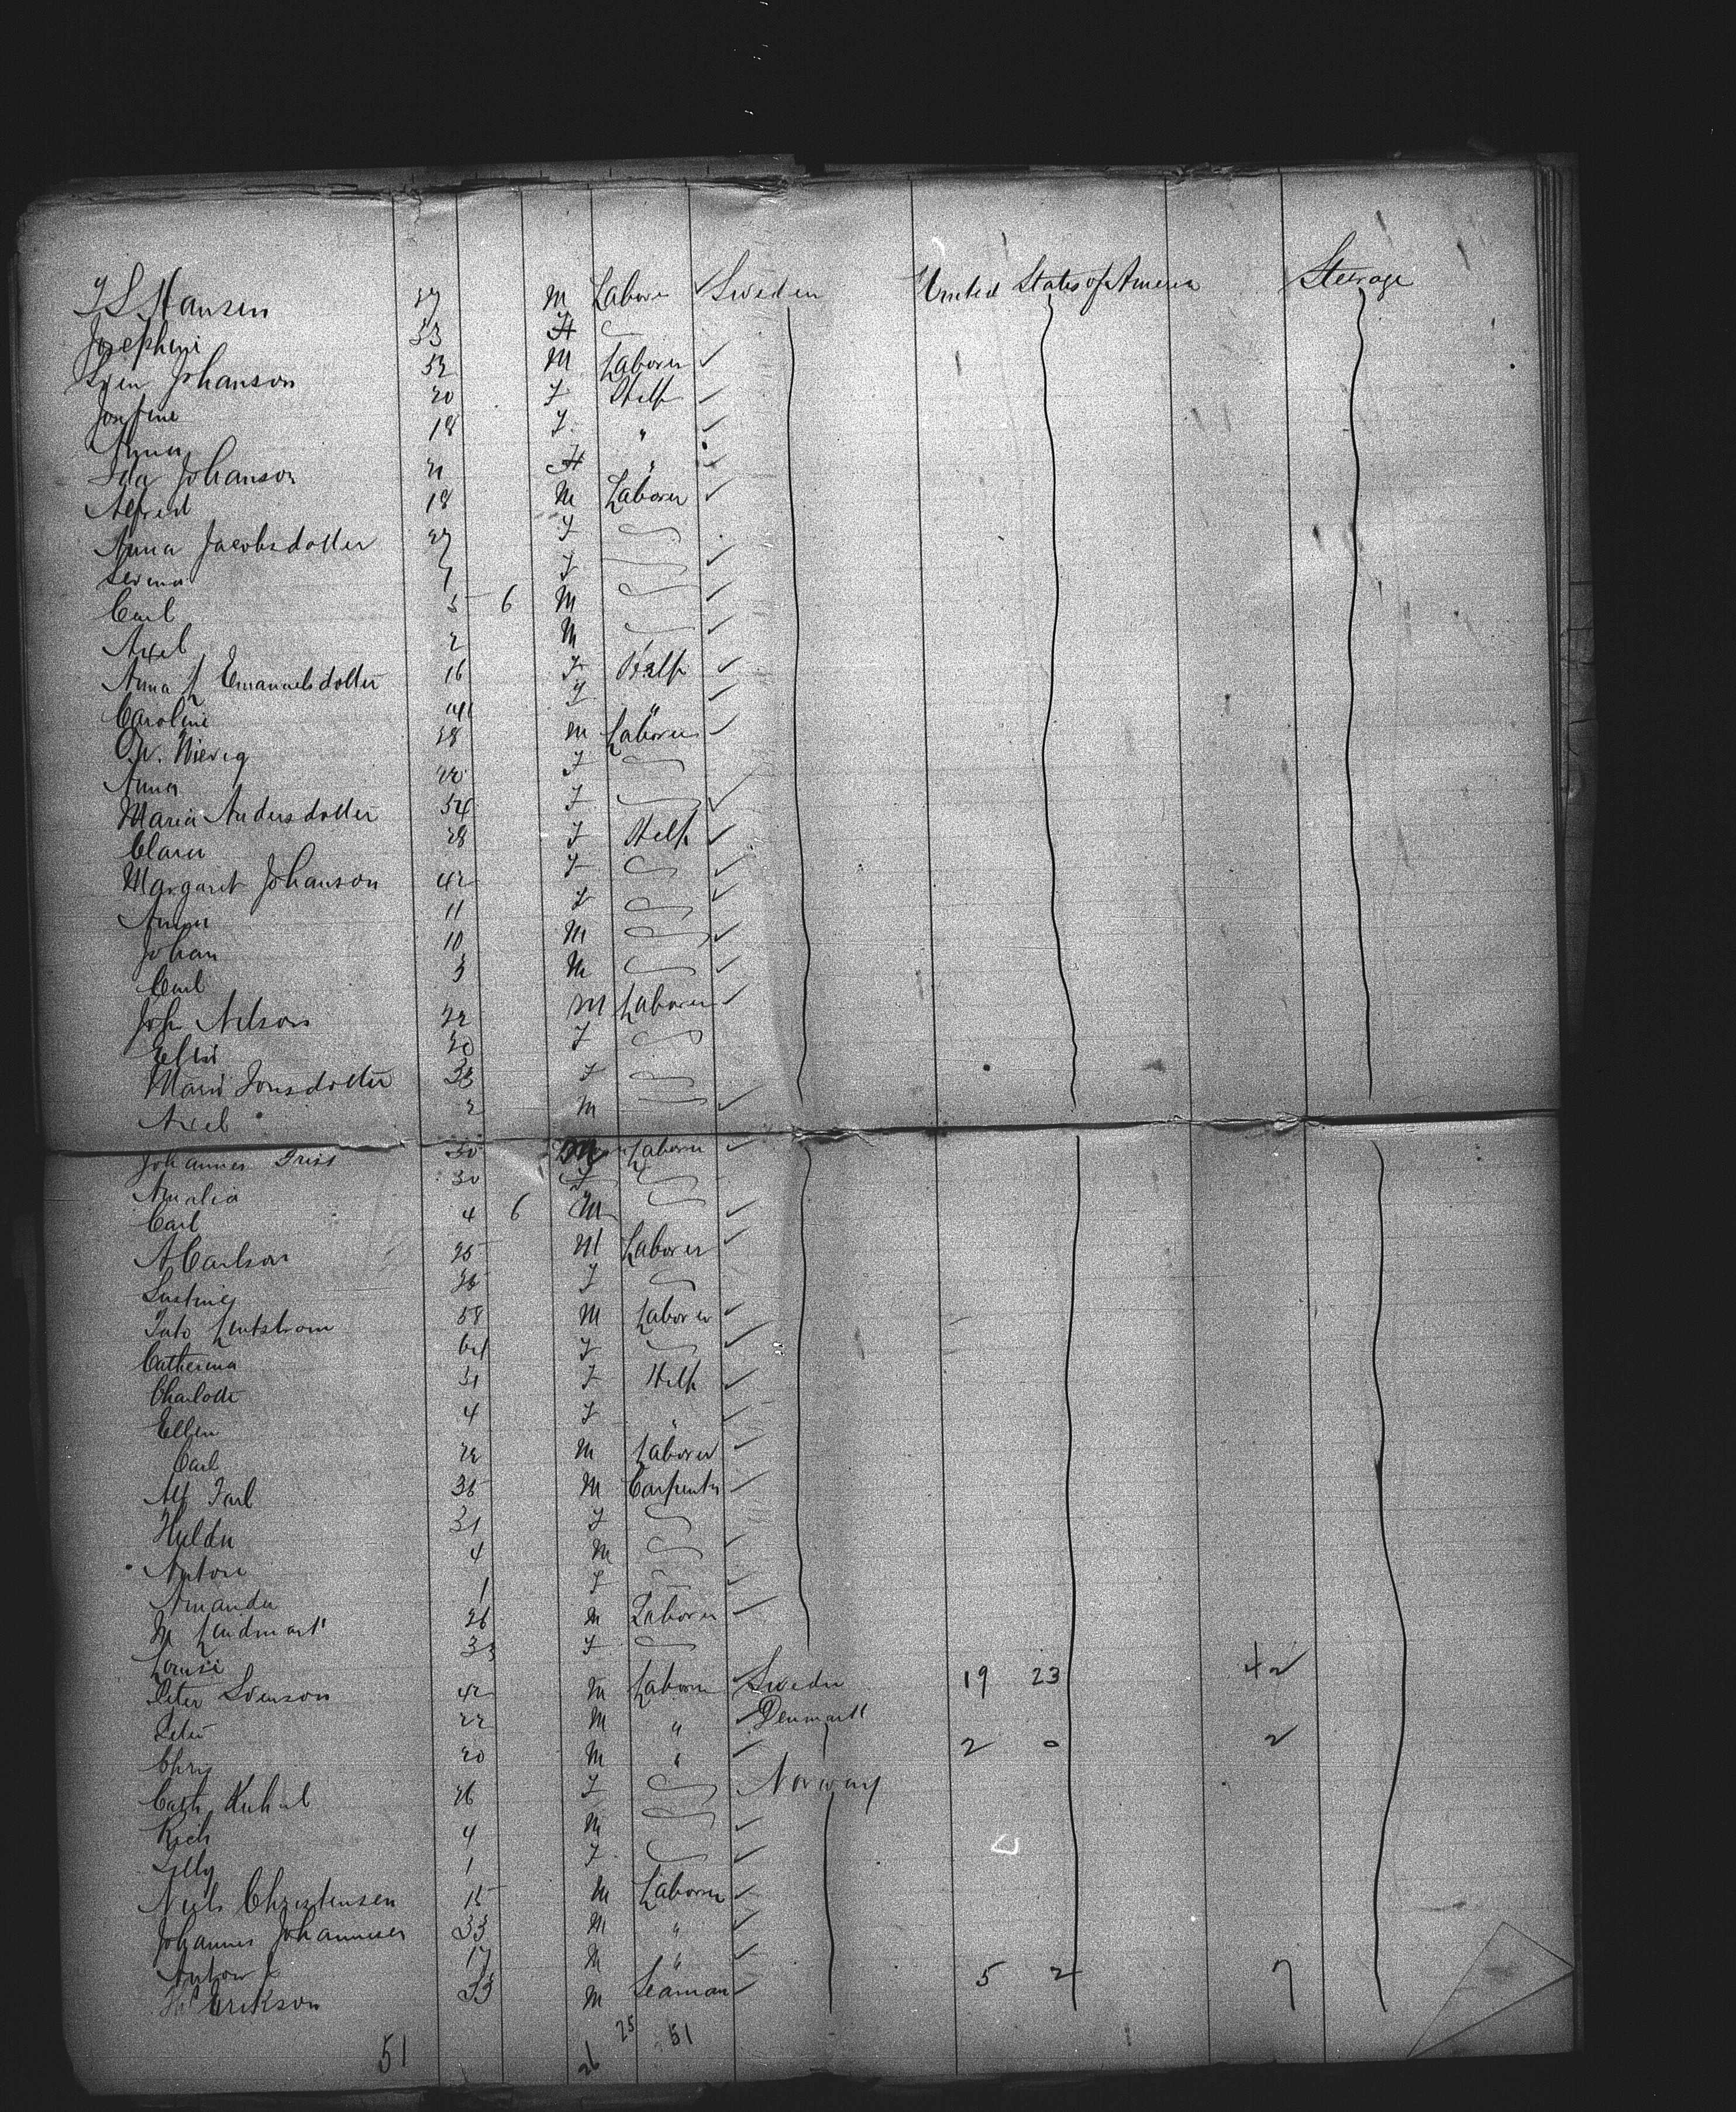 Hansen 37 M Labore Sweden United States of America Steerage
Josephine 33 F
Sven Johanson 52 M Laborer
Josefine 20 F Help
Anna 18 F "
Ida Johanson 21 F "
Alfred 18 M Laborer
Anna Jacobsdotter 27 F
7 F
Carl 5 6 M
Axel 2 M
Anna Emanuelsdotter 16 F Help
Caroline F "
28 M Laborer
Anna F
Maria Andersdotter 54 F
Clara 28 F Help
Margaret Johanson 42 F
Anna 11 F
Johan 10 M
Carl 3 M
Joh Nelson 22 M Laborer
F
Maria Jonsdotter F
Axel 2 M
Johannes 30 M Laborer
Amalia 30 F
Carl 4 6 M
A Carlson 25 M Laborer
F
58 M Laborer
Catherina F
Charlotte 31 F Help
Ellen 4 F "
Carl 22 M Laborer
Alf 35 M Carpenter
Hulda 31 F
Anton 4 M
Amanda 1 F
26 M Laborer
Louise 33 F
Peter Svenson 42 M Laborer Sweden 19 23 42
22 M " Denmark
Chris 20 M " 2 0 2
Cath 26 F Norway
Rich 4 M
Lilly 1 F
Niels Christensen 15 M Laborer
Johannes Johannesen 33 M "
Anton 17 M "
Erikson 33 M Seaman 5 2 7
51 26 25 51